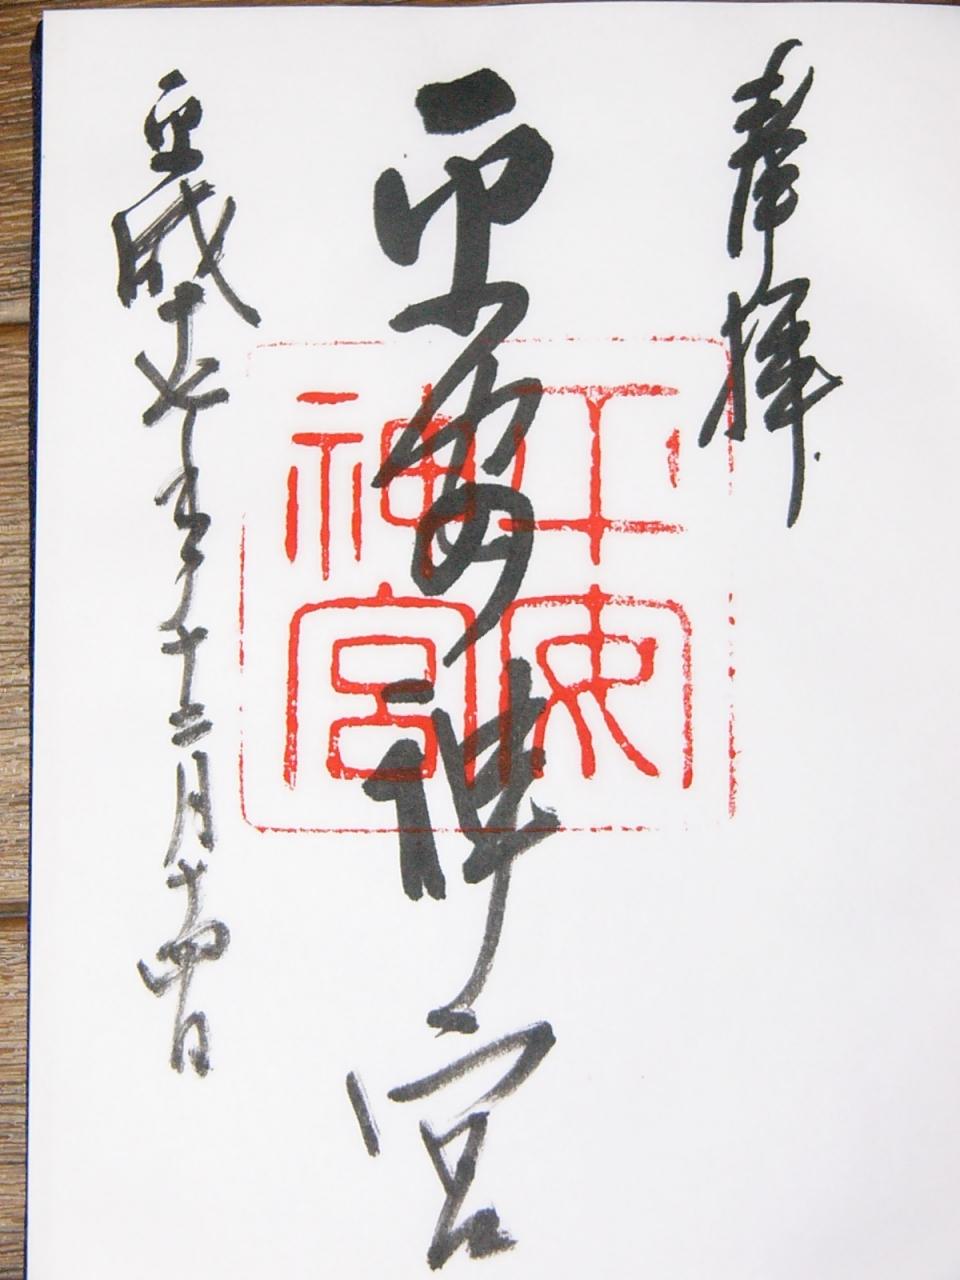 奉拝
平安神宮
平安
神宮
平成十七年十二月十四日